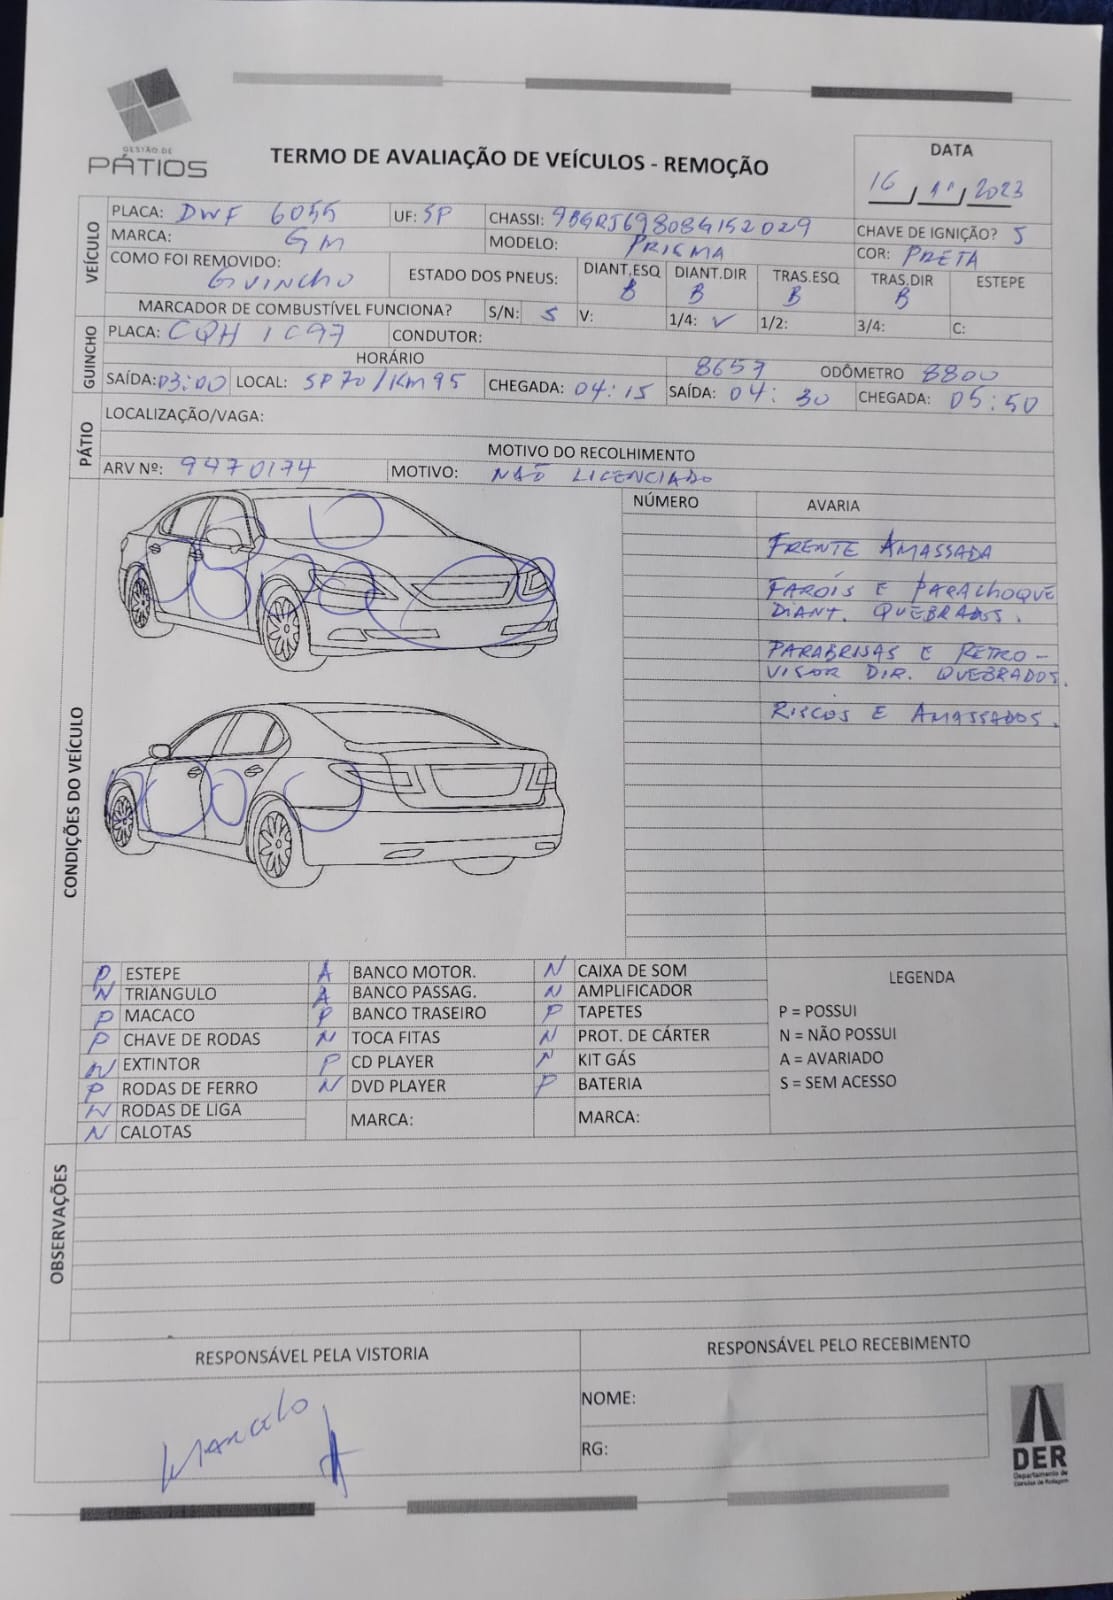 GESTÃO DE
PÁTIOS
TERMO DE AVALIAÇÃO DE VEÍCULOS - REMOÇÃO
DATA
16 / 11 / 2023
VEÍCULO
PLACA: DWF 6055 UF: SP CHASSI: 9BGRJ69808G152029 CHAVE DE IGNIÇÃO? S
MARCA: GM MODELO: PRISMA COR: PRETA
COMO FOI REMOVIDO: GUINCHO ESTADO DOS PNEUS: DIANT.ESQ B DIANT.DIR B TRAS.ESQ B TRAS.DIR B ESTEPE
MARCADOR DE COMBUSTÍVEL FUNCIONA? S/N: S V: 1/4: ✓ 1/2: 3/4: C:
GUINCHO
PLACA: CQH 1C97 CONDUTOR:
HORÁRIO 8657 ODÔMETRO 8800
SAÍDA: 03:00 LOCAL: SP70/KM95 CHEGADA: 04:15 SAÍDA: 04:30 CHEGADA: 05:50
PÁTIO
LOCALIZAÇÃO/VAGA:
MOTIVO DO RECOLHIMENTO
ARV Nº: 9470174 MOTIVO: NÃO LICENCIADO
CONDIÇÕES DO VEÍCULO
NÚMERO AVARIA
FRENTE AMASSADA
FARÓIS E PARALHOQUE
DIANT. QUEBRADOS.
PARABRISAS E RETRO-
VISOR DIR. QUEBRADOS.
RISCOS E AMASSADOS.
P ESTEPE A BANCO MOTOR. N CAIXA DE SOM LEGENDA
N TRIÂNGULO A BANCO PASSAG. N AMPLIFICADOR
P MACACO P BANCO TRASEIRO P TAPETES P = POSSUI
P CHAVE DE RODAS N TOCA FITAS N PROT. DE CÁRTER N = NÃO POSSUI
N EXTINTOR P CD PLAYER N KIT GÁS A = AVARIADO
P RODAS DE FERRO N DVD PLAYER P BATERIA S = SEM ACESSO
N RODAS DE LIGA MARCA: MARCA:
N CALOTAS
OBSERVAÇÕES
RESPONSÁVEL PELA VISTORIA RESPONSÁVEL PELO RECEBIMENTO
MARCELO
NOME:
RG:
DER
Departamento de
Estradas de Rodagem